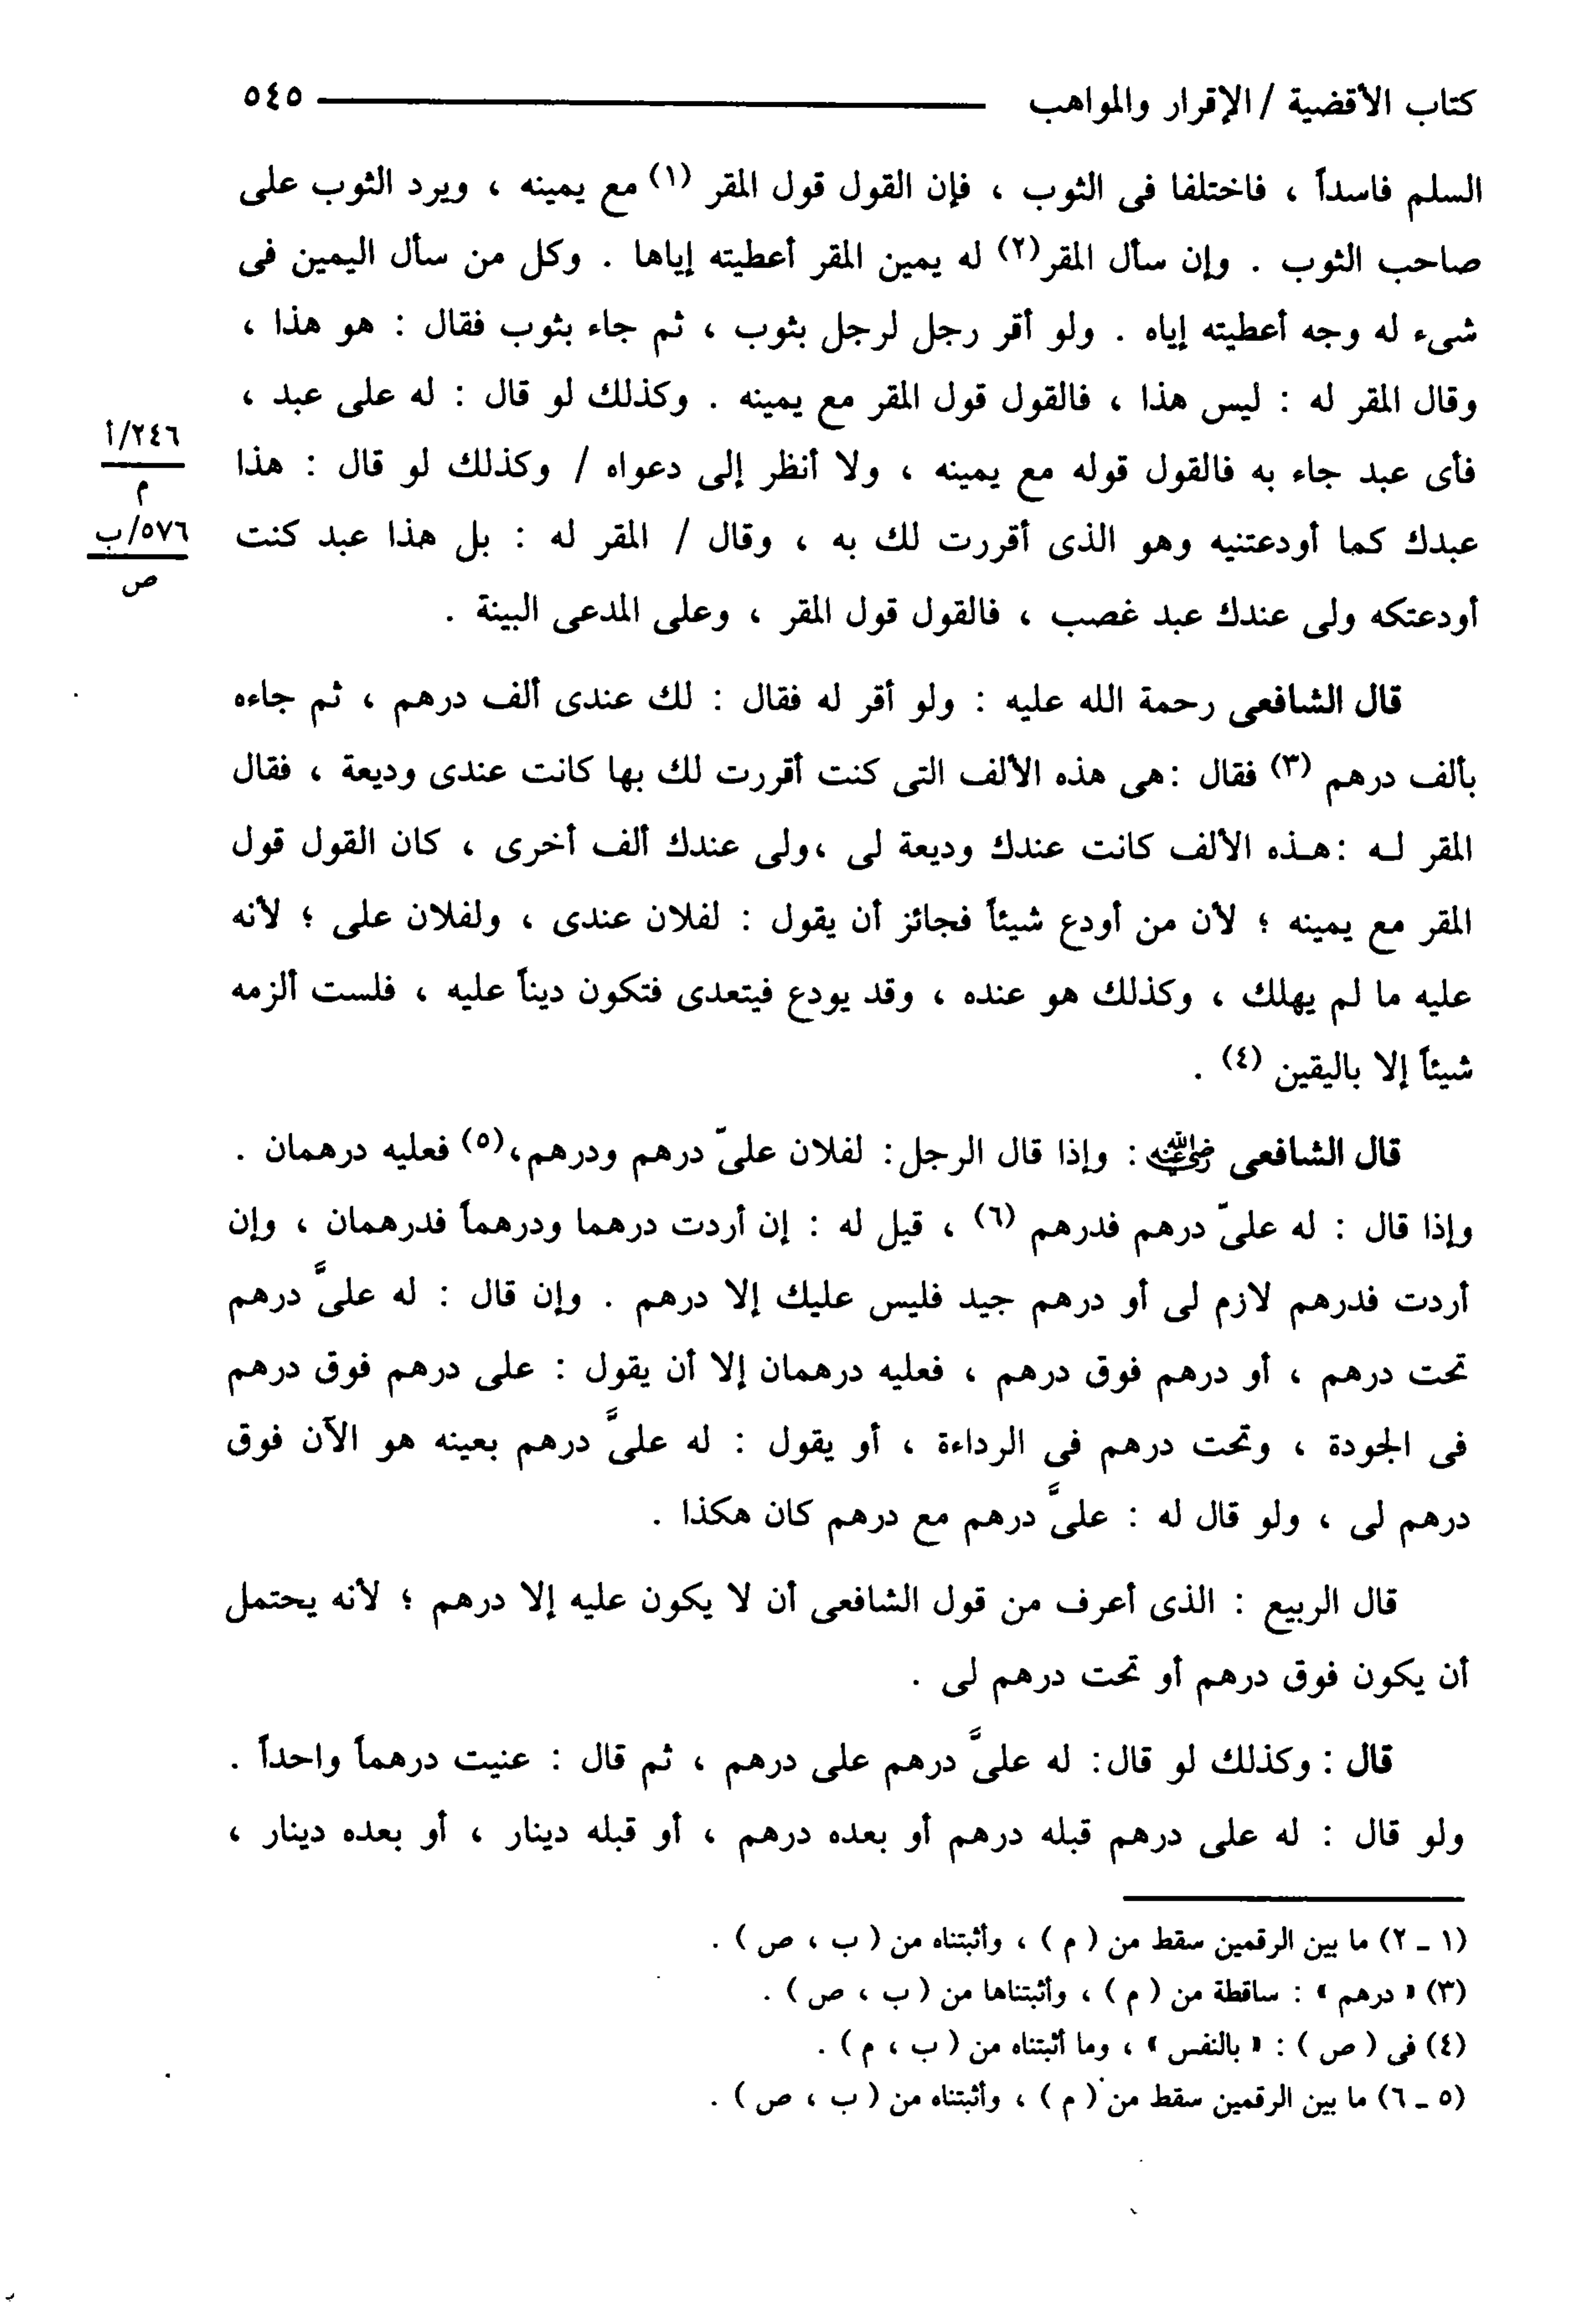 كتاب الأقضية / الإقرار والمواهب ٥٤٥
السلم فاسداً ، فاختلفا فى الثوب ، فإن القول قول المقر (١) مع يمينه ، ويرد الثوب على
صاحب الثوب . وإن سأل المقر (٢) له يمين المقر أعطيته إياها . وكل من سأل اليمين فى
شىء له وجه أعطيته إياه . ولو أقر رجل لرجل بثوب ، ثم جاء بثوب فقال : هو هذا ،
وقال المقر له : ليس هذا ، فالقول قول المقر مع يمينه . وكذلك لو قال : له على عبد ،
فأى عبد جاء به فالقول قوله مع يمينه ، ولا أنظر إلى دعواه / وكذلك لو قال : هذا
عبدك كما أودعتنيه وهو الذى أقررت لك به ، وقال / المقر له : بل هذا عبد كنت
أودعتكه ولى عندك عبد غصب ، فالقول قول المقر ، وعلى المدعى البينة .
٢٤٦/أ
م
٥٧٦/ب
ص
قال الشافعى رحمة الله عليه : ولو أقر له فقال : لك عندى ألف درهم ، ثم جاءه
بألف درهم (٣) فقال : هى هذه الألف التى كنت أقررت لك بها كانت عندى وديعة ، فقال
المقر لـه : هـذه الألف كانت عندك وديعة لى ، ولى عندك ألف أخرى ، كان القول قول
المقر مع يمينه ؛ لأن من أودع شيئاً فجائز أن يقول : لفلان عندى ، ولفلان على ؛ لأنه
عليه ما لم يهلك ، وكذلك هو عنده ، وقد يودع فيتعدى فتكون ديناً عليه ، فلست ألزمه
شيئاً إلا باليقين (٤) .
قال الشافعى رضي الله عنه : وإذا قال الرجل : لفلان علىّ درهم ودرهم، (٥) فعليه درهمان .
وإذا قال : له علىّ درهم فدرهم (٦) ، قيل له : إن أردت درهما ودرهماً فدرهمان ، وإن
أردت فدرهم لازم لى أو درهم جيد فليس عليك إلا درهم . وإن قال : له علىَّ درهم
تحت درهم ، أو درهم فوق درهم ، فعليه درهمان إلا أن يقول : على درهم فوق درهم
فى الجودة ، وتحت درهم فى الرداءة ، أو يقول : له علىَّ درهم بعينه هو الآن فوق
درهم لى ، ولو قال له : علىَّ درهم مع درهم كان هكذا .
قال الربيع : الذى أعرف من قول الشافعى أن لا يكون عليه إلا درهم ؛ لأنه يحتمل
أن يكون فوق درهم أو تحت درهم لى .
قال : وكذلك لو قال: له علىَّ درهم على درهم ، ثم قال : عنيت درهماً واحداً .
ولو قال : له على درهم قبله درهم أو بعده درهم ، أو قبله دينار ، أو بعده دينار ،
(١ ـ ٢) ما بين الرقمين سقط من ( م ) ، وأثبتناه من ( ب ، ص ) .
(٣) « درهم » : ساقطة من ( م ) ، وأثبتناها من ( ب ، ص ) .
(٤) فى ( ص ) : « بالنفس » ، وما أثبتناه من ( ب ، م ) .
(٥ ـ ٦) ما بين الرقمين سقط من ( م ) ، وأثبتناه من ( ب ، ص ) .